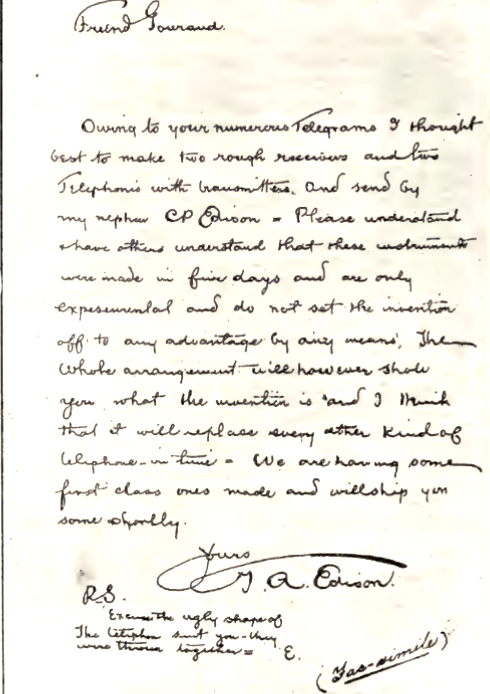 Friend Gouraud.
Owing to your numerous Telegrams I thought
best to make two rough receivers and two
Telephones with transmitters, and send by
my nephew CP Edison = Please understand
& have others understand that these instruments
were made in five days and are only
experimental and do not set the invention
off to any advantage by any means, The
whole arrangement will however show
you what the invention is and I think
that it will replace every other kind of
telephone in time = We are having some
first class ones made and will ship you
some shortly.
Yours
T. A. Edison.
P.S.
Excuse the ugly shape of
The telephon sent you - they
were thrown together = E.
(Fac-simile)